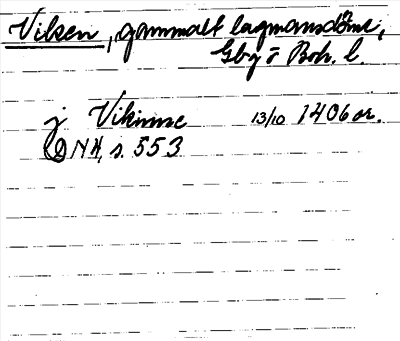 Viken, gammalt lagmansdöme,
Gbg o Boh. l.
j Vikinne 13/10 1406 or.
NH, s. 553